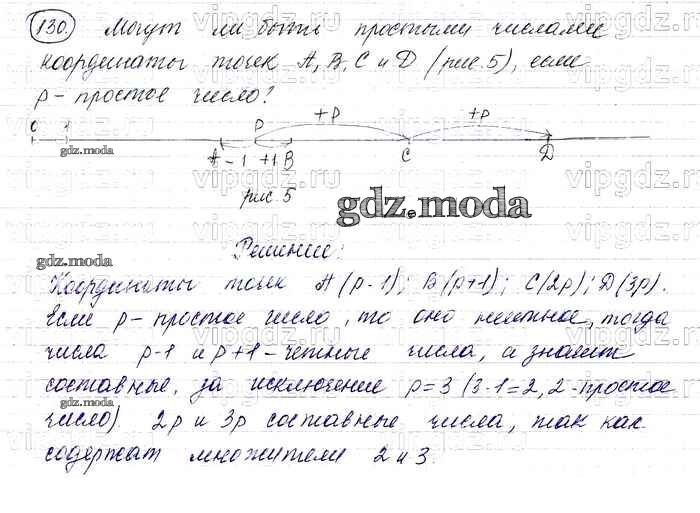 130. Могут ли быть простыми числами
координаты точек A, B, C и D (рис. 5), если
p - простое число?
0 1 p +p +p
A -1 +1 B C D
gdz.moda
рис. 5
gdz.moda
Решение:
gdz.moda
Координаты точек A (p-1); B (p+1); C(2p); D(3p).
Если p - простое число, то оно нечетное, тогда
числа p-1 и p+1 - четные числа, а значит
составные, за исключение p=3 (3-1=2, 2-простое
число) 2p и 3p составные числа, так как
gdz.moda
содержат множители 2 и 3.
vipgdz.ru